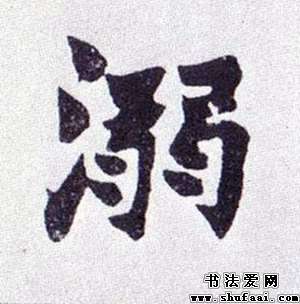 溺
书法爱网
www.shufaai.com